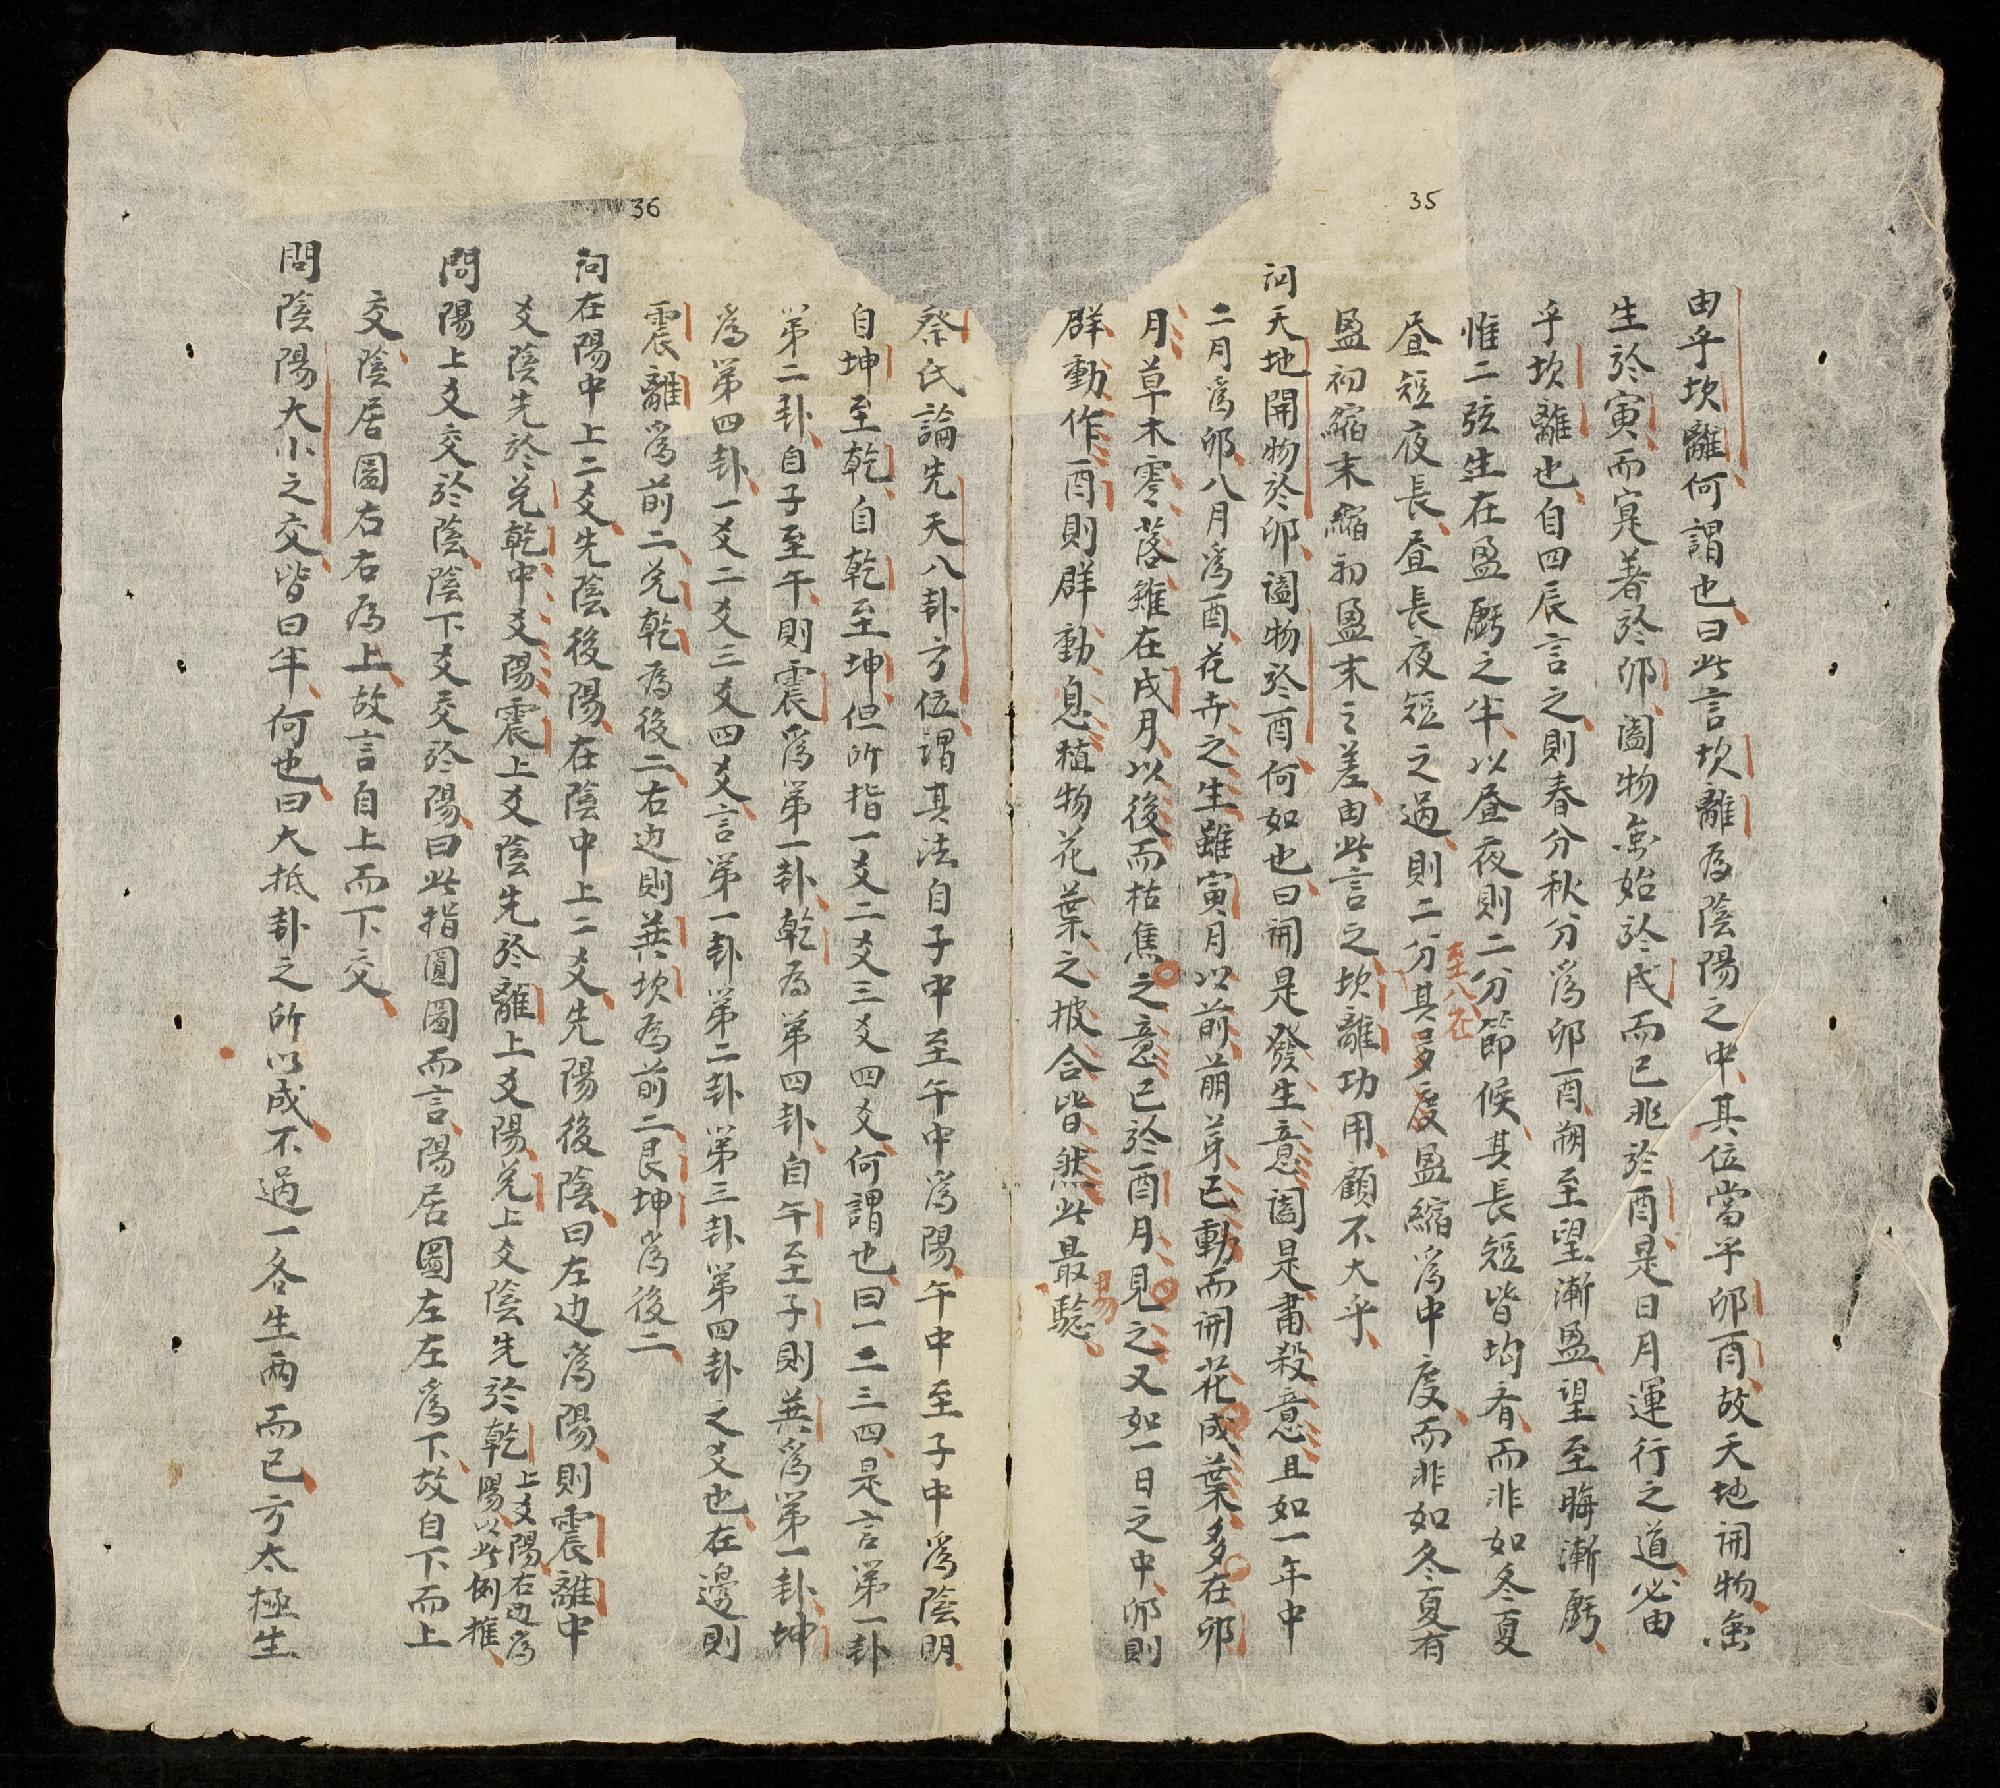 35
由乎坎離何謂也曰此言坎離為陰陽之中其位當乎卯酉故天地開物虽
生於寅而寔著於卯闔物虽始於戌而已兆於酉是日月運行之道必由
乎坎離也自四辰言之則春分秋分爲卯酉朔至望漸盈望至晦漸虧
惟二弦生在盈虧之半以昼夜則二分節候其長短皆均有而非如冬夏
至八在
昼短夜長昼長夜短之過則二分其多度盈縮爲中度而非如冬夏有
盈初縮末縮初盈末之差由此言之坎離功用顧不大乎
问天地開物於卯闔物於酉何如也曰開是發生意闔是肅殺意且如一年中
二月爲卯八月爲酉花卉之生雖寅月以前萠芽已動而開花成葉多在卯
月草木零落雖在戌月以後而枯焦之意已於酉月見之又如一日之中卯則
群動作酉則群動息植物花葉之披合皆然此最騐
易
36
蔡氏論先天八卦方位謂其法自子中至午中爲陽午中至子中爲陰明
自坤至乾自乾至坤但所指一爻二爻三爻四爻何謂也曰一二三四是言第一卦
第二卦自子至午則震爲第一卦乾為第四卦自午至子則巽爲第一卦坤
爲第四卦一爻二爻三爻四爻言第一卦第二卦第三卦第四卦之爻也在邊則
震離爲前二兊乾為後二右边則巽坎為前二艮坤爲後二
问在陽中上二爻先陰後陽在陰中上二爻先陽後陰曰左边爲陽則震離中
爻陰先於兊乾中爻陽震上爻陰先於離上爻陽兊上爻陰先於乾上爻陽右边為
陽以此例推
問陽上爻交於陰陰下爻交於陽曰此指圓圖而言陽居圖左左爲下故自下而上
交陰居圖右右為上故言自上而下交
問陰陽大小之交皆曰半何也曰大抵卦之所以成不過一各生兩而已方太極生